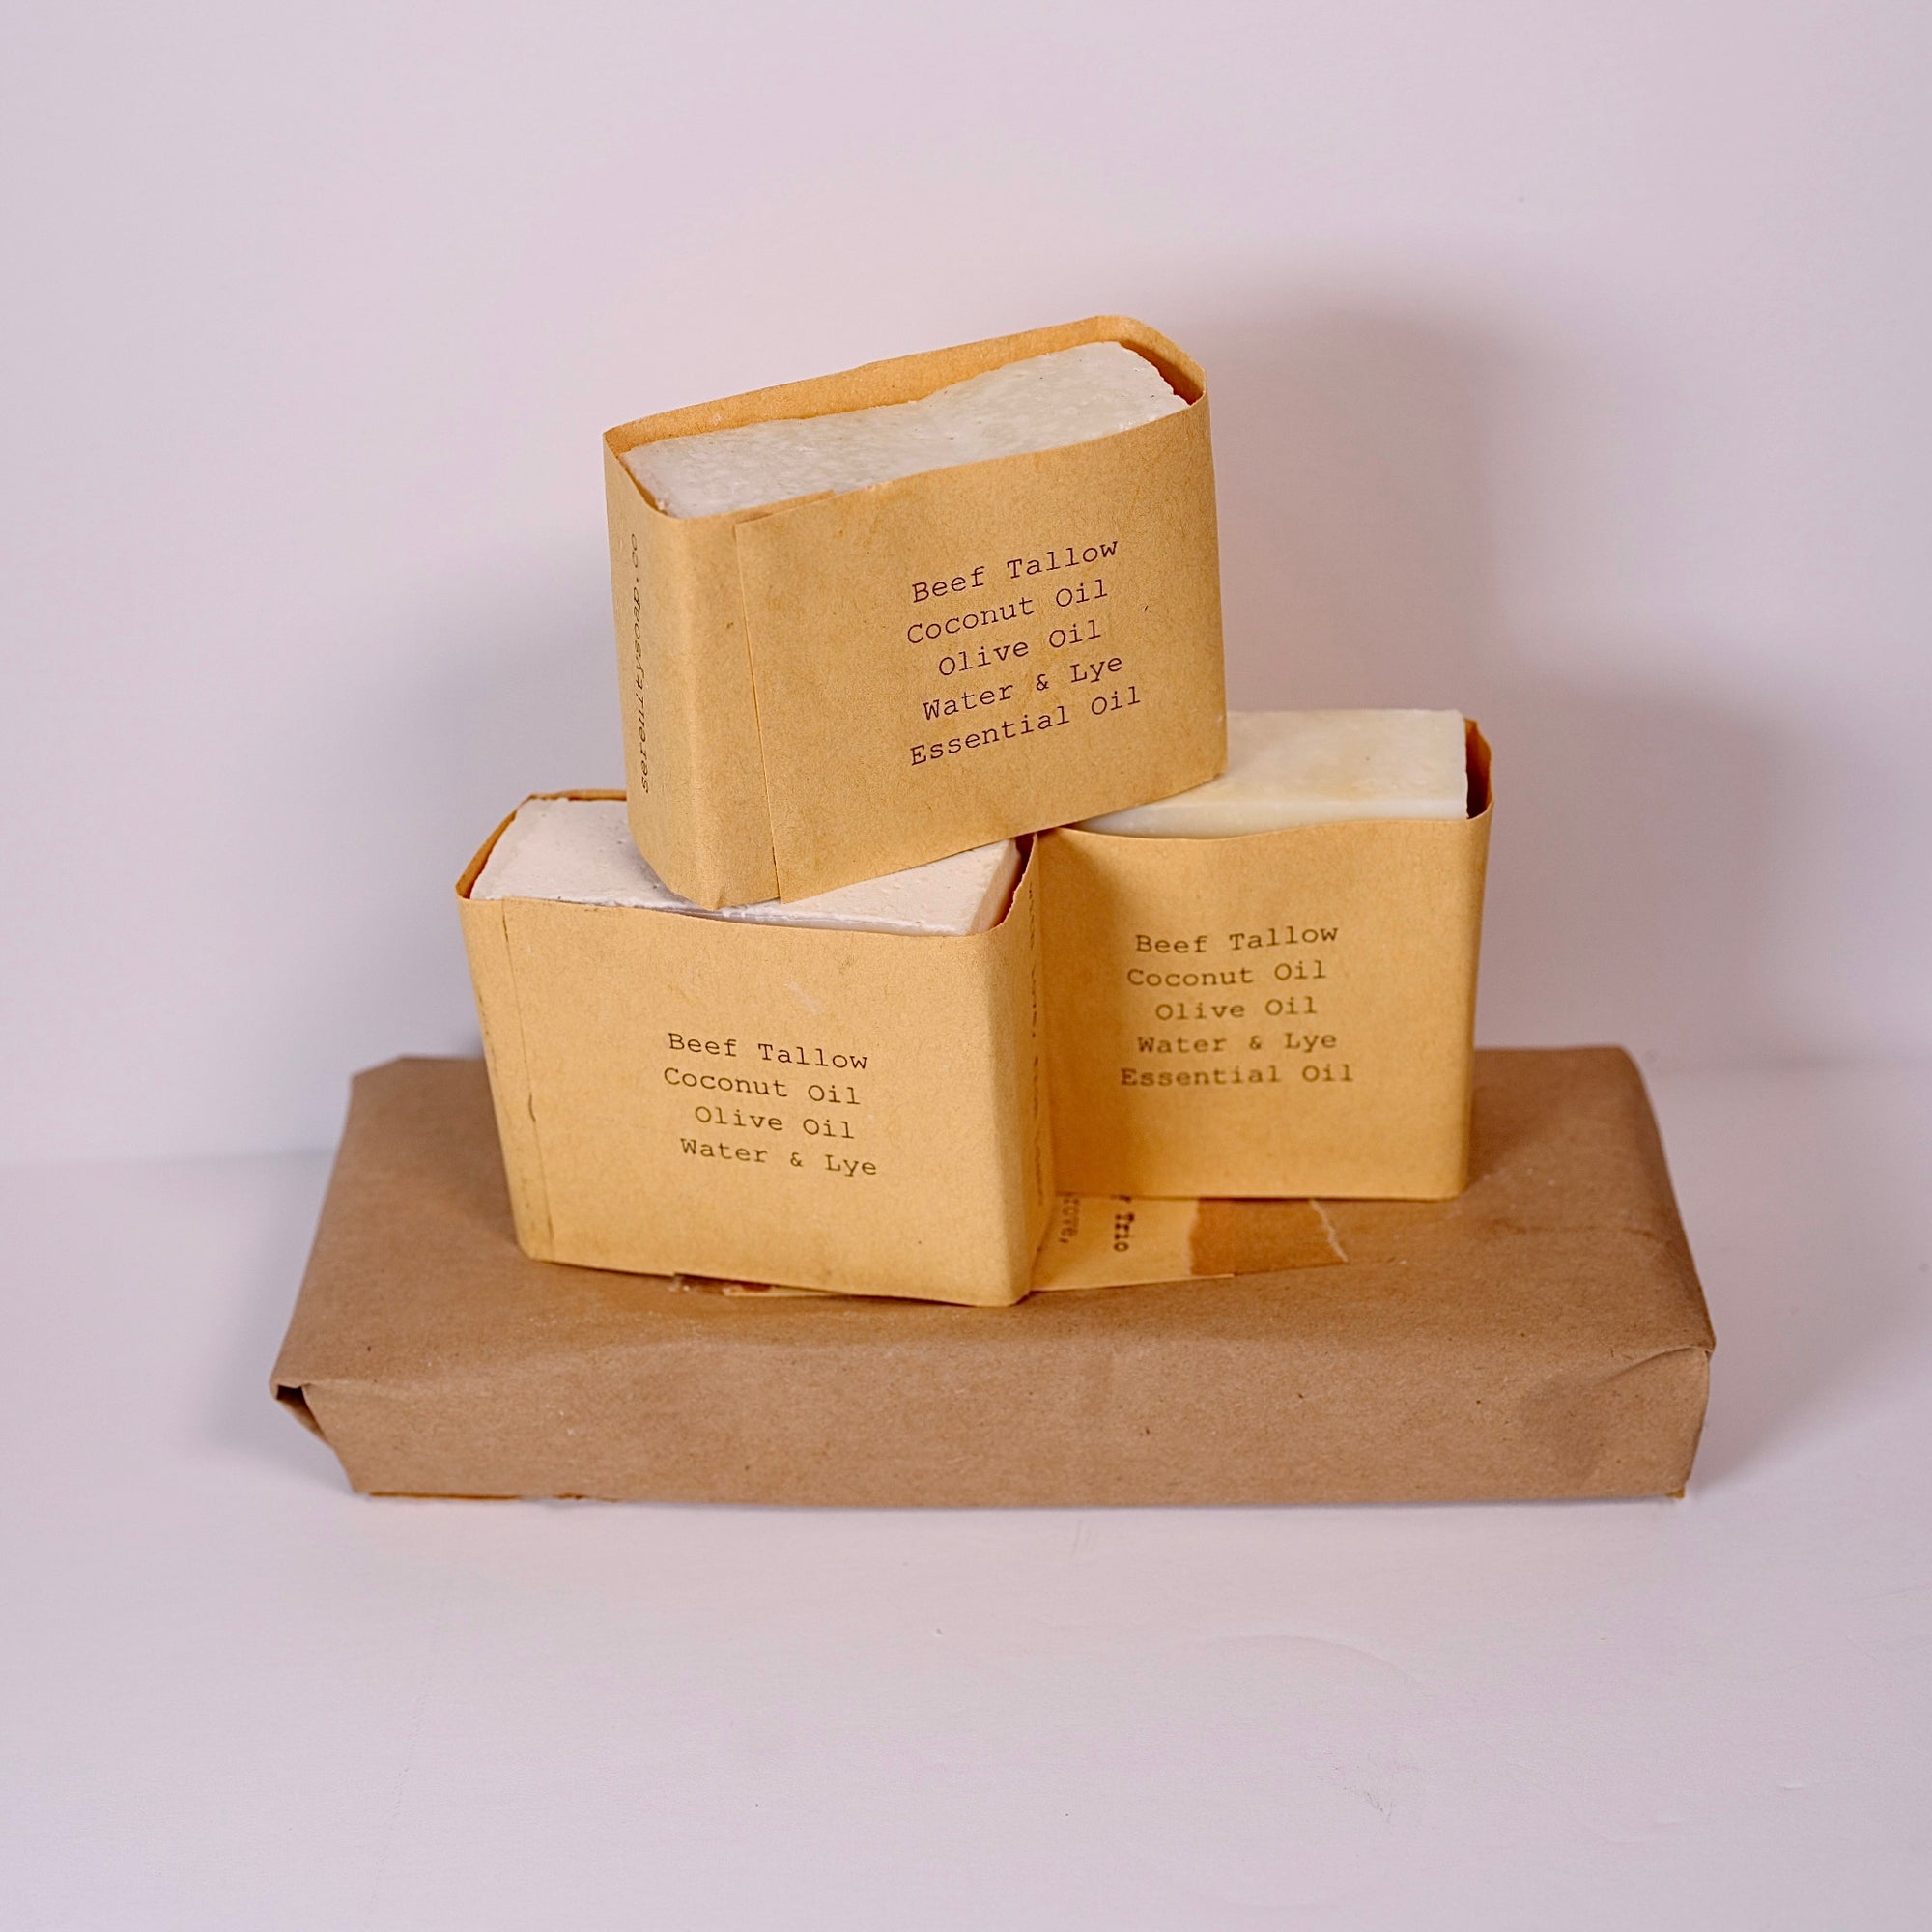 Beef Tallow
Coconut Oil
Olive Oil
Water & Lye
Essential Oil
Beef Tallow
Coconut Oil
Olive Oil
Water & Lye
Beef Tallow
Coconut Oil
Olive Oil
Water & Lye
Essential Oil
Trio